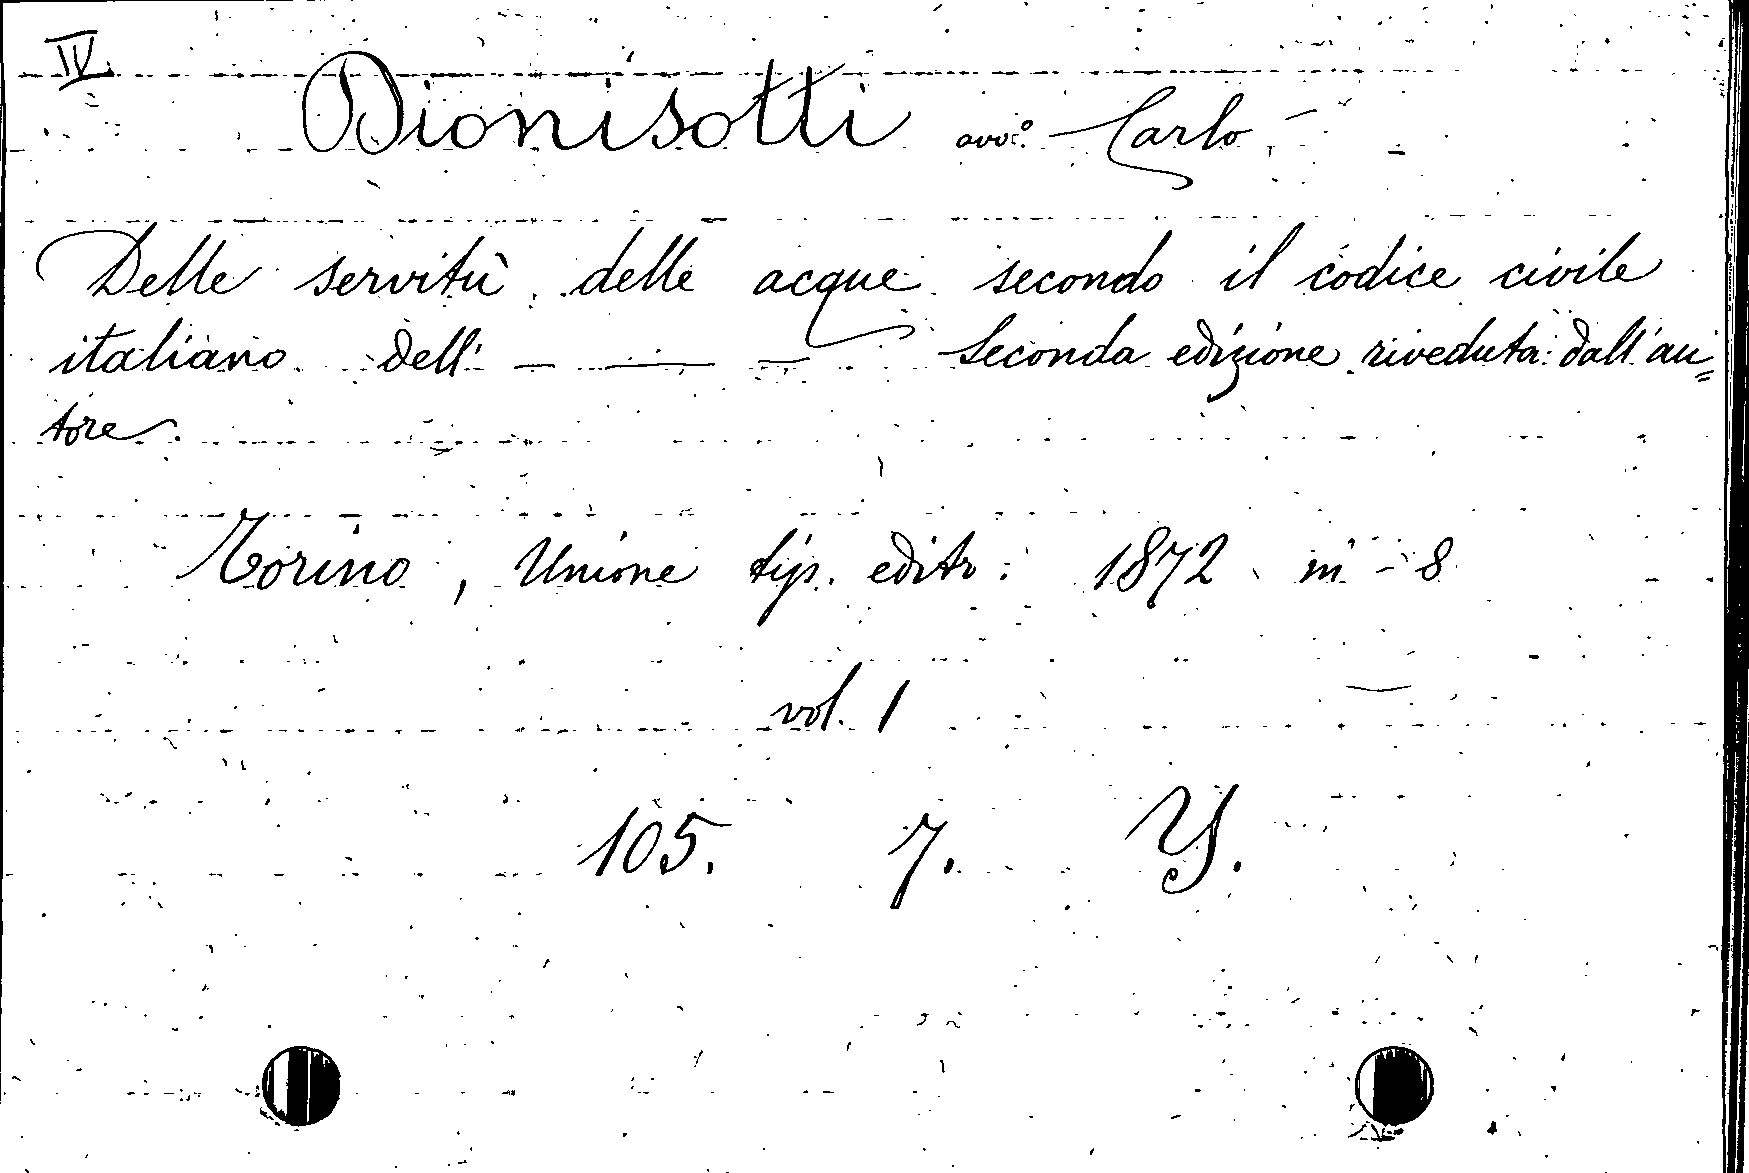 IV
Dionisotti avv.º Carlo
Delle servitù delle acque secondo il codice civile
italiano dell' — — — Seconda edizione riveduta dall'au=
tore.
Torino, Unione tip. editr: 1872 in - 8
vol. 1
105. 7. Y.